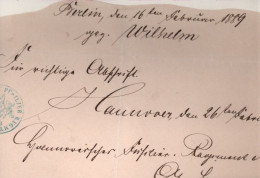 Berlin, den 14ten Februar 1889
gez. Wilhelm
Für richtige Abschrift.
Hannover, den 26ten Febru
Hannoversches Füsilier-Regiment